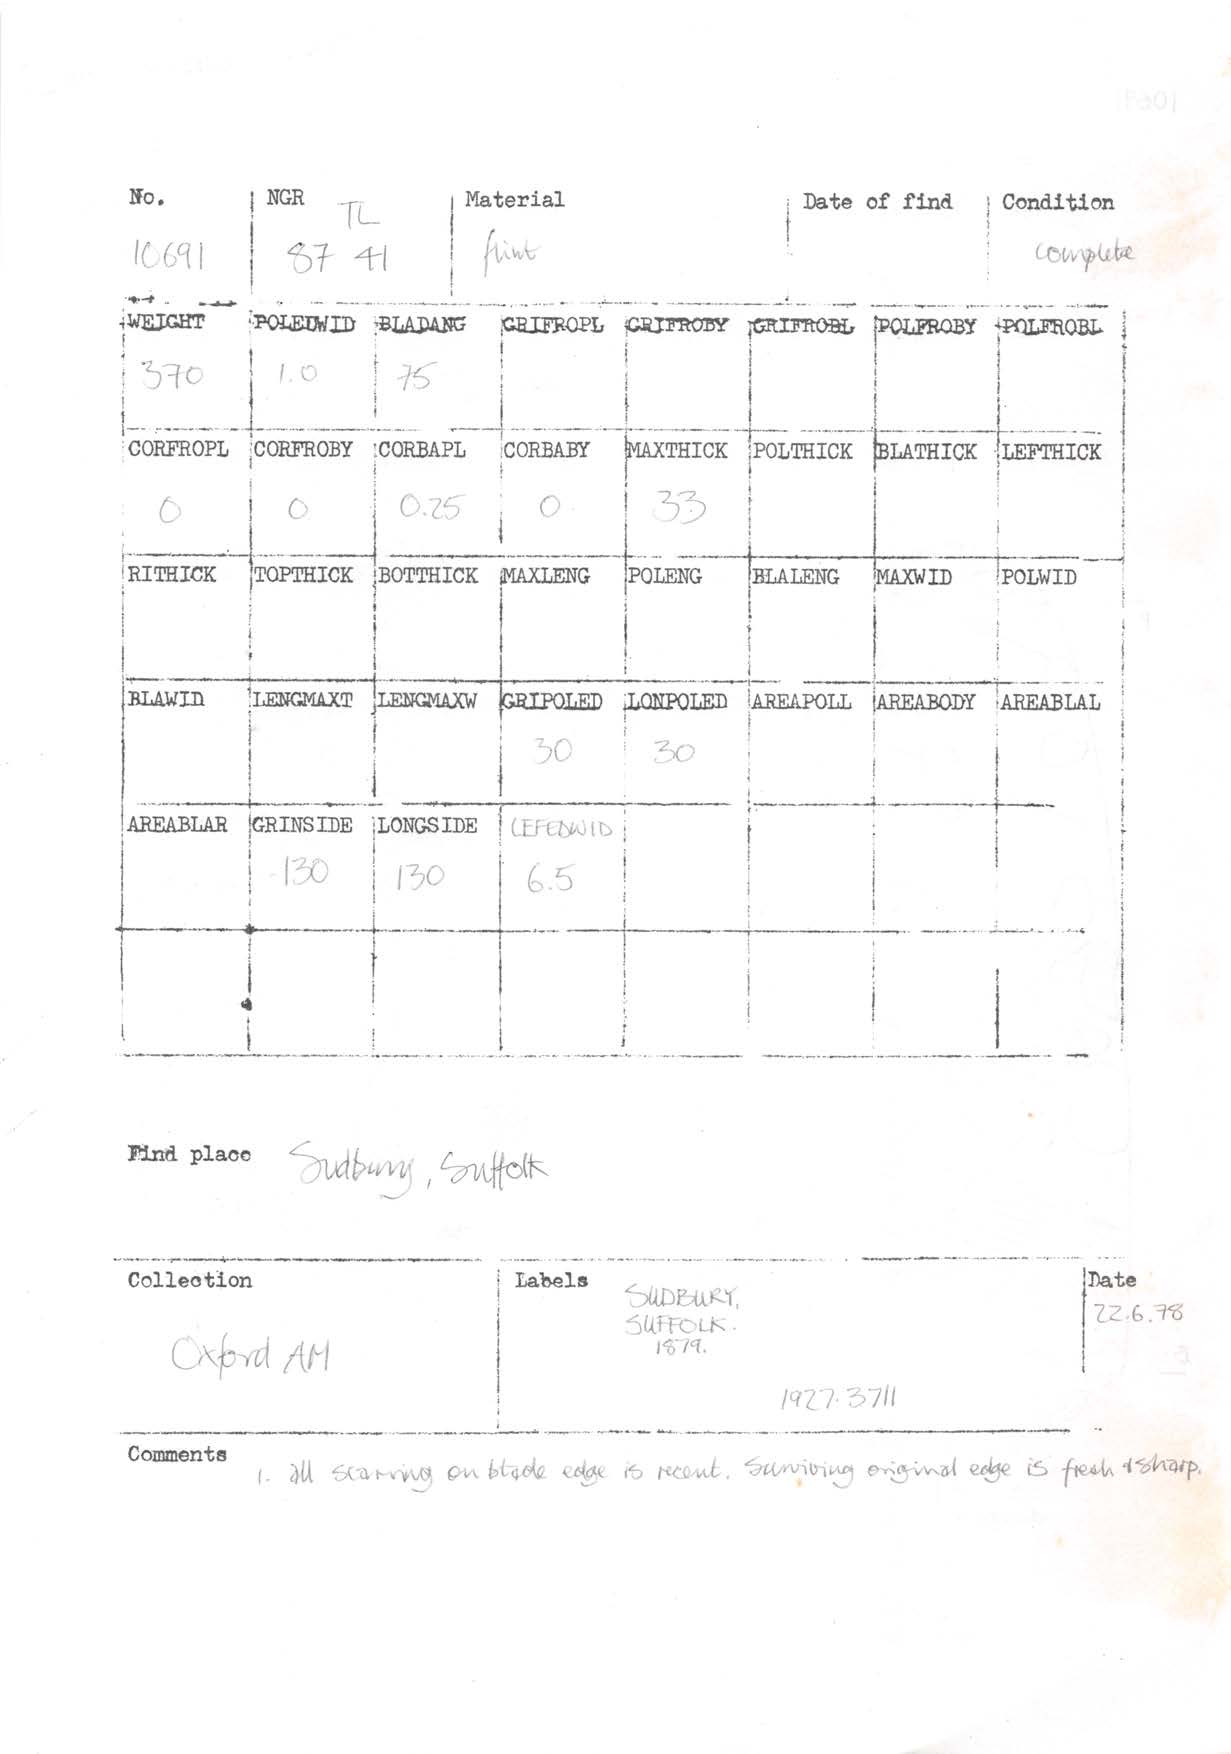 No. NGR TL Material Date of find Condition
10691 87 41 flint complete
WEIGHT POLEDWID BLADANG GRIFROPL GRIFROBY GRIFROBL POLFROBY POLFROBL
370 1.0 75
CORFROPL CORFROBY CORBAPL CORBABY MAXTHICK POLTHICK BLATHICK LEFTHICK
0 0 0.25 0 33
RITHICK TOPTHICK BOTTHICK MAXLENG POLENG BLALENG MAXWID POLWID
BLAWID LENGMAXT LENGMAXW GRIPOLED LONPOLED AREAPOLL AREABODY AREABLAL
30 30
AREABLAR GRINSIDE LONGSIDE LEFEDWID
130 130 6.5
Find place Sudbury, Suffolk
Collection Labels Date
Oxford AM
SUDBURY,
SUFFOLK.
1879.
1927.3711
22.6.78
Comments 1. All scarring on blade edge is recent. Surviving original edge is fresh & sharp.